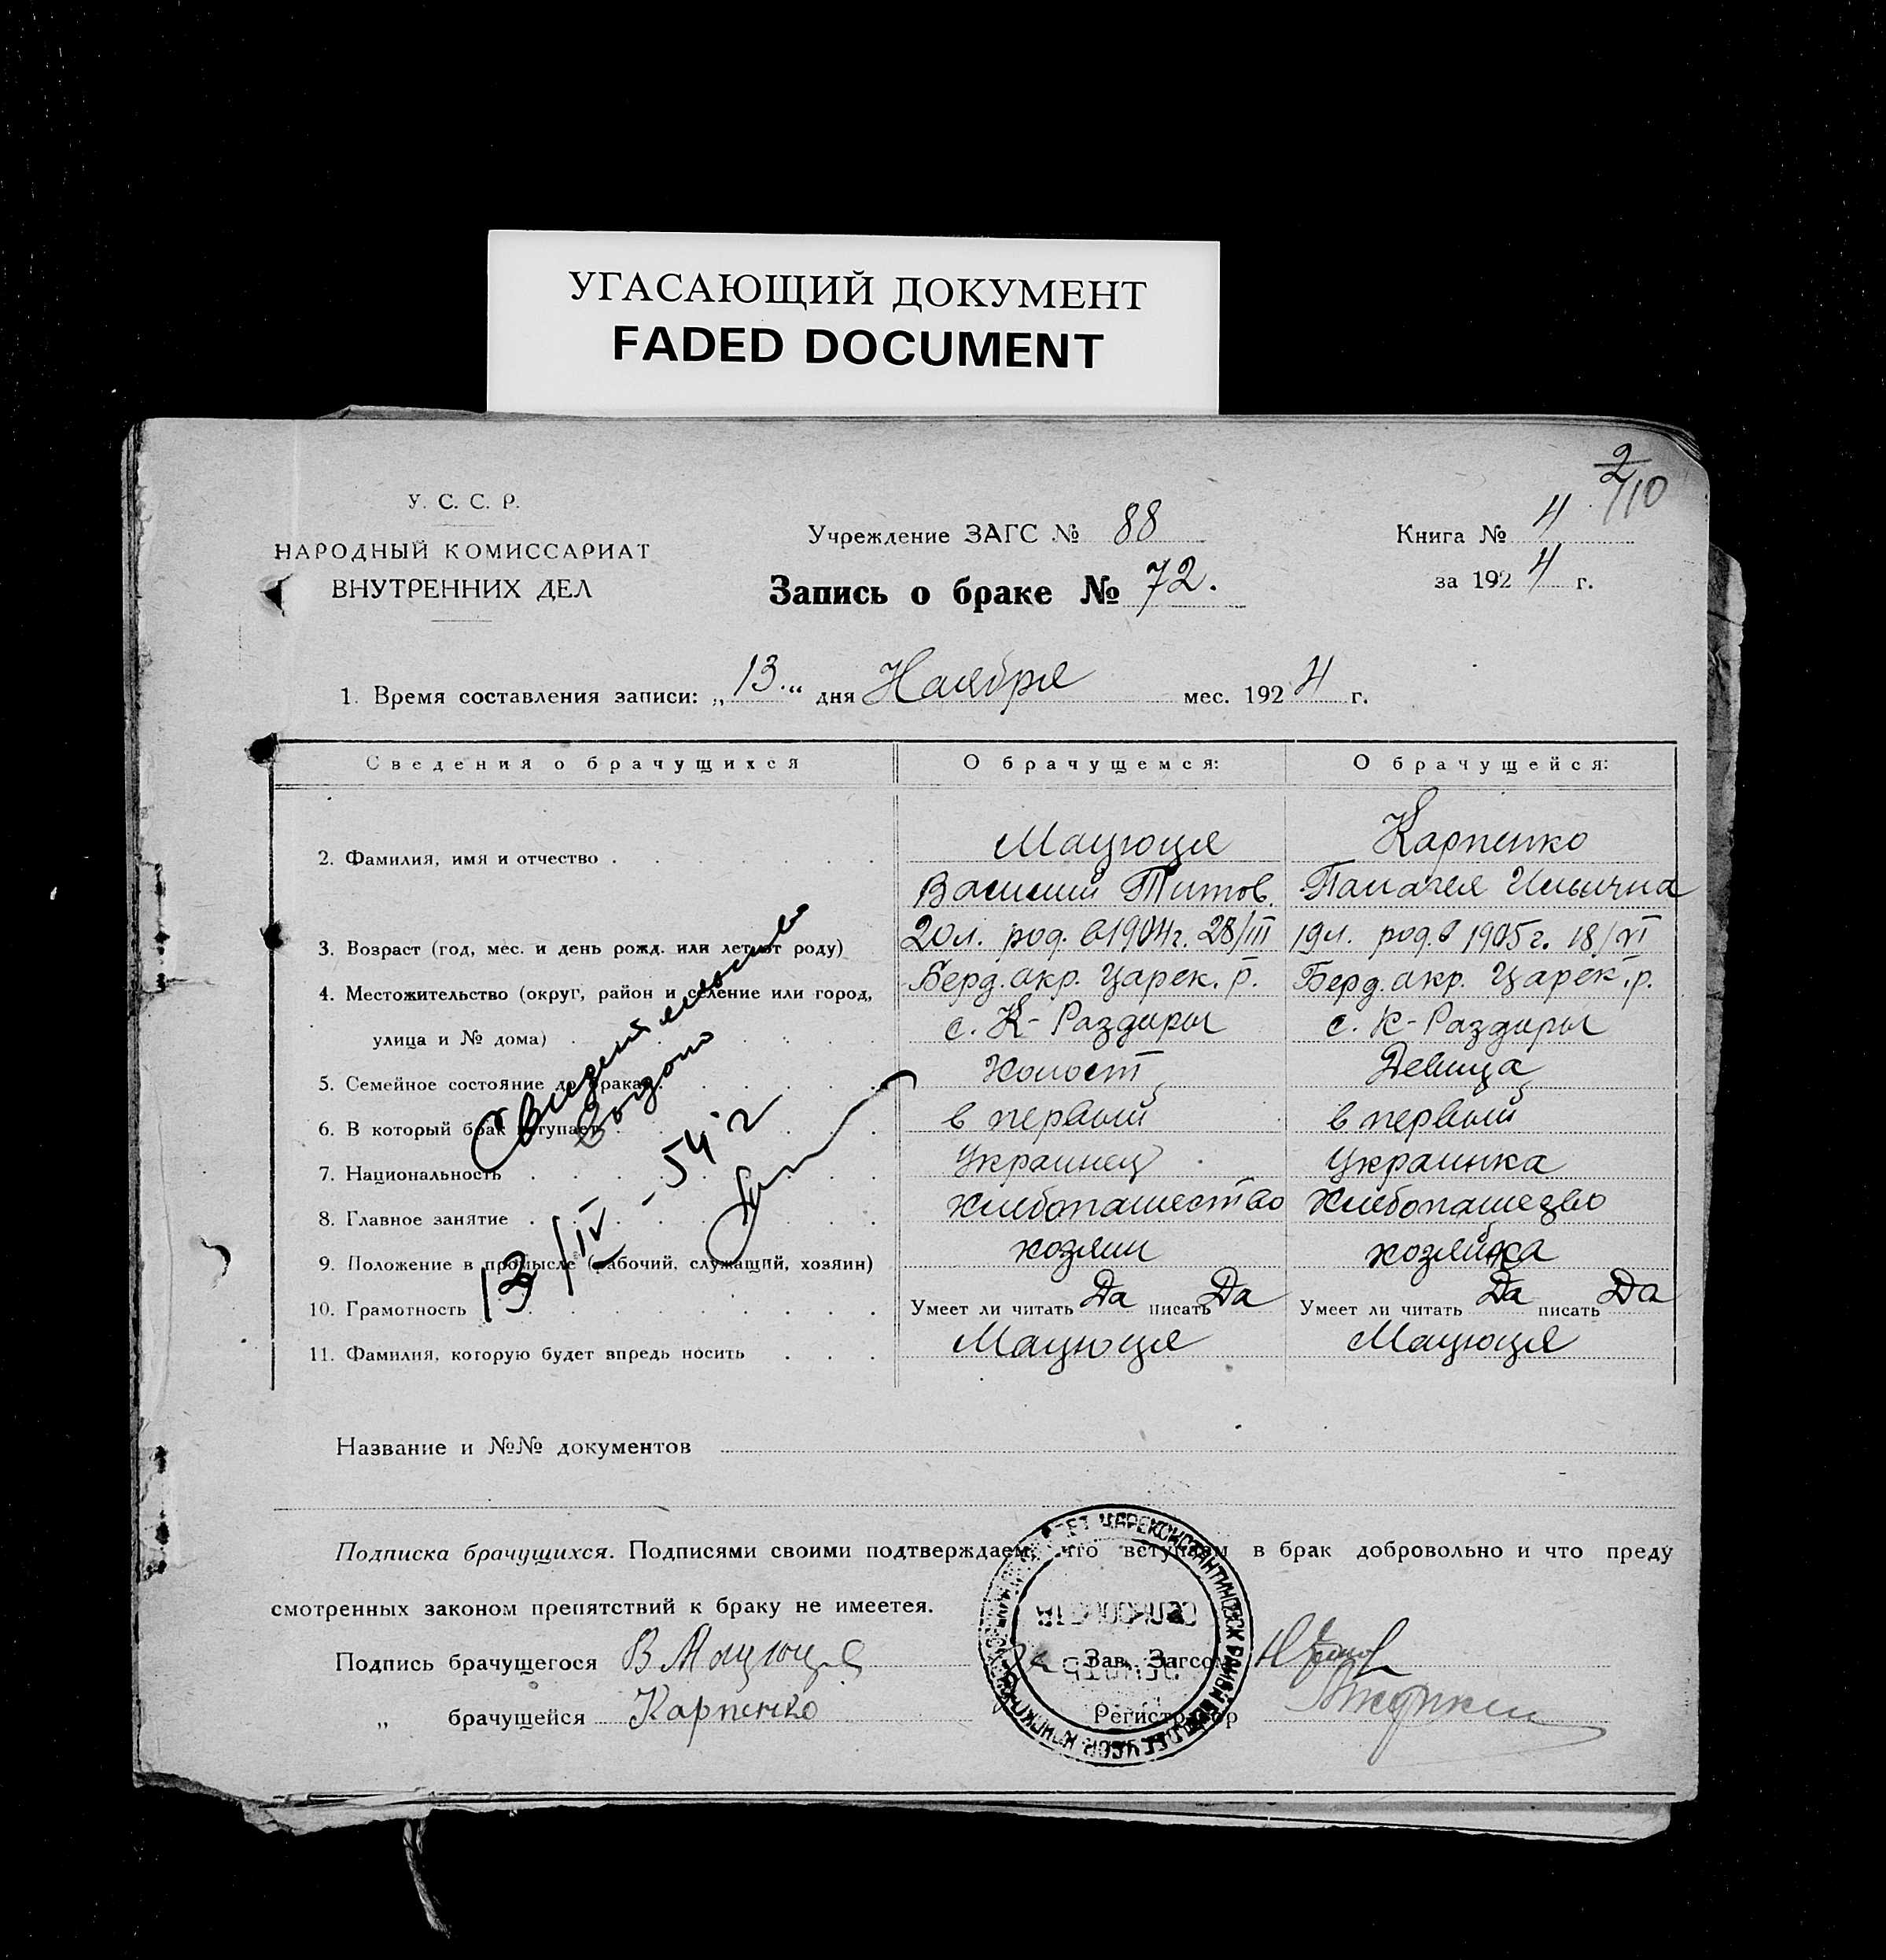 УГАСАЮЩИЙ ДОКУМЕНТ
FADED DOCUMENT
2/110
У. С. С. Р.
НАРОДНЫЙ КОМИССАРИАТ
ВНУТРЕННИХ ДЕЛ
Учреждение ЗАГС № 88
Запись о браке № 72.
Книга № 4
за 1924 г.
1. Время составления записи: „13.“ дня Ноября мес. 1924 г.
Сведения о брачущихся О брачущемся: О брачущейся:
2. Фамилия, имя и отчество Мацюця Карпенко
Василий Титов. Палагея Ильична
3. Возраст (год, мес. и день рожд. или лет от роду) 20 л. род. в 1904 г. 28/III 19 л. род. в 1905 г. 18/VI
4. Местожительство (округ, район и селение или город, Берд. окр. Царек. р. Берд. окр. Царек. р.
улица и № дома) с. К-Раздоры с. К-Раздоры
5. Семейное состояние до брака Холост Девица
6. В который брак вступает в первый в первый
7. Национальность Украинец Украинка
8. Главное занятие Хлебопашество Хлебопашество
9. Положение в промысле (рабочий, служащий, хозяин) хозяин хозяйка
10. Грамотность Умеет ли читать Да писать Да Умеет ли читать Да писать Да
11. Фамилия, которую будет впредь носить Мацюця Мацюця
Свидетельство
выдано
13/IV-54 г
Название и №№ документов
Подписка брачущихся. Подписями своими подтверждаем, что вступаем в брак добровольно и что преду
смотренных законом препятствий к браку не имеется.
Подпись брачущегося В Мацюця Зав. Загсом
„ брачущейся Карпенко Регистратор